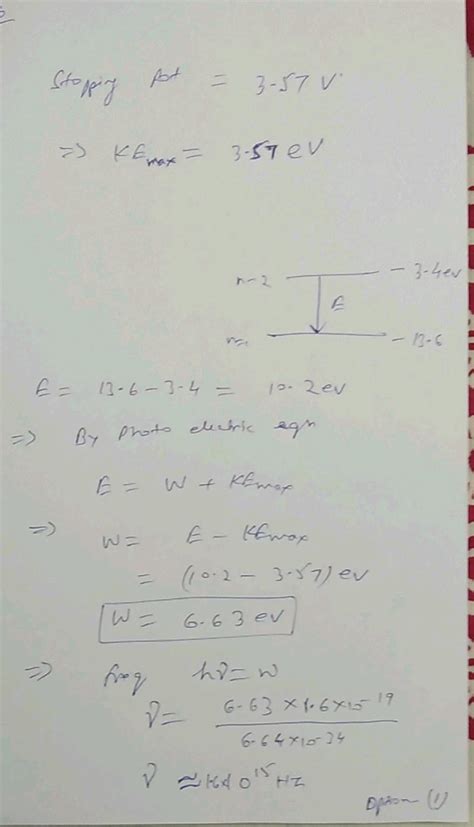 Stopping Pot = 3.57 V
=> KEmax = 3.57 eV
n-2 - 3.4ev
E
n= - 13.6
E = 13.6 - 3.4 = 10.2 ev
=> By Photo electric eqn
E = W + KEmax
=> W = E - KEmax
= (10.2 - 3.57) ev
W = 6.63 ev
=> freq hν = W
ν = 6.63 × 1.6 × 10-19
6.64 × 10-34
ν ≈ 1.6×10^15 Hz
Option (1)